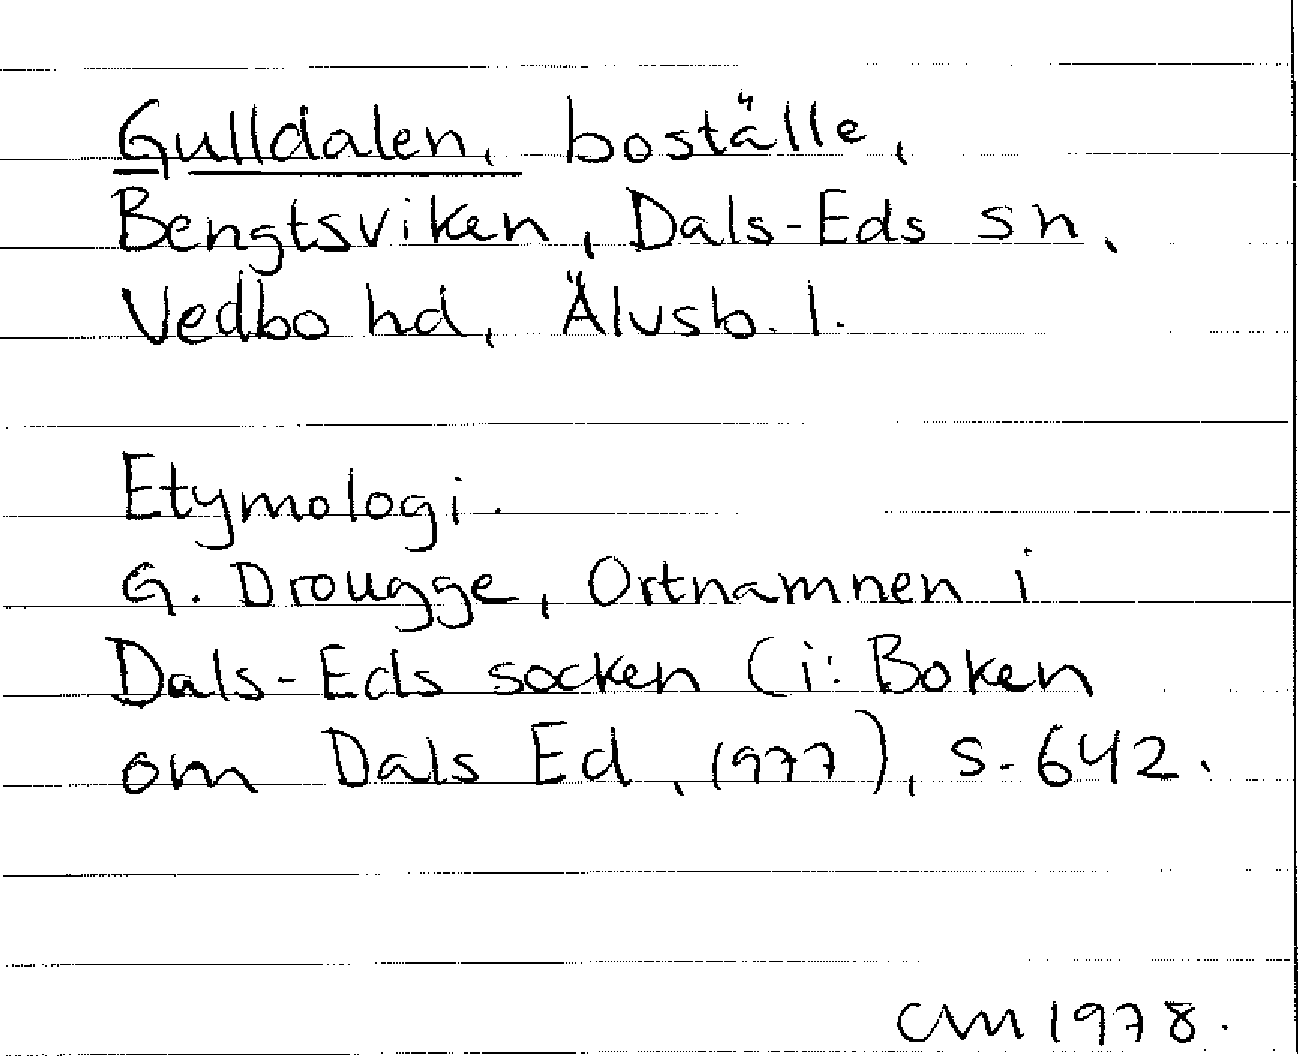 Gulldalen, boställe,
Bengtsviken, Dals-Eds sn,
Vedbo hd, Älvsb. l.
Etymologi.
G. Drougge, Ortnamnen i
Dals-Eds socken (i: Boken
om Dals Ed, 1977), s. 642.
CM 1978.